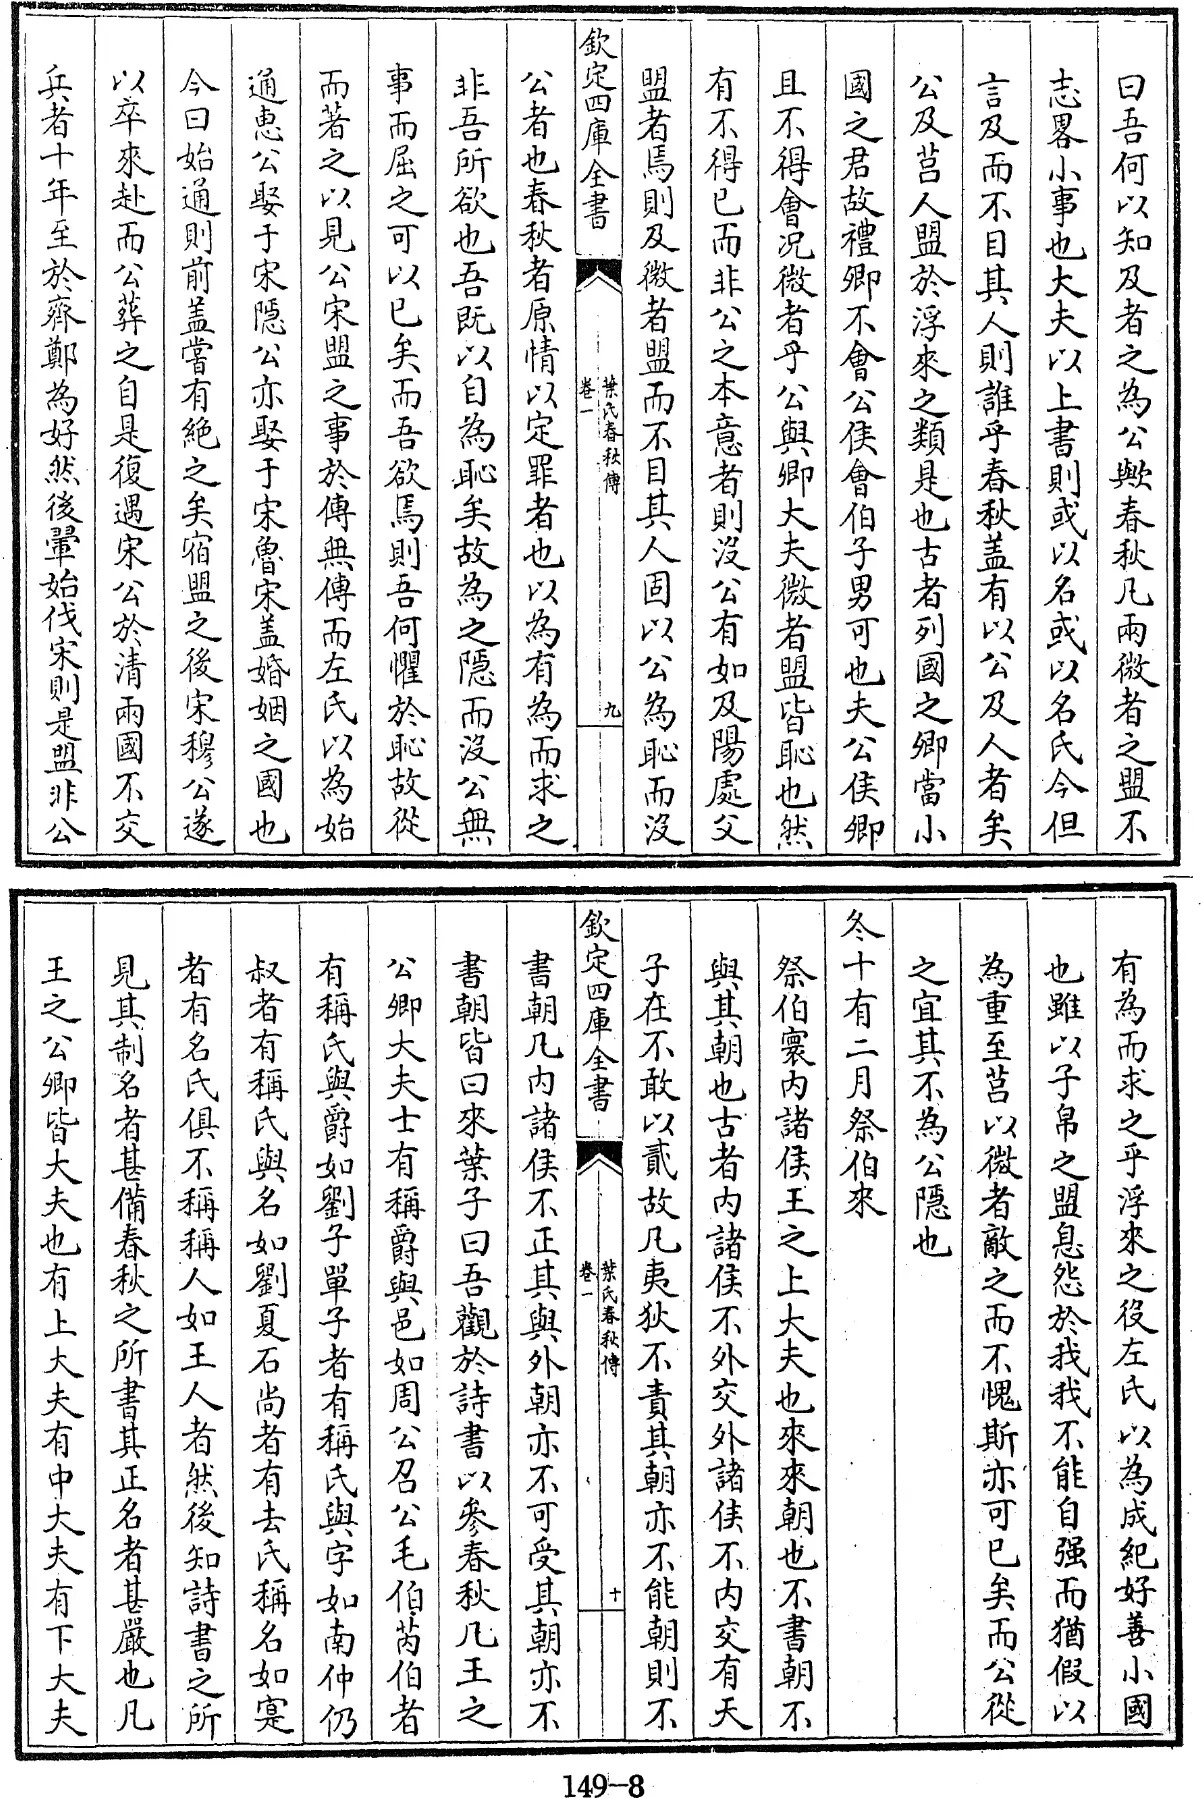 曰吾何以知及者之為公歟春秋凡兩微者之盟不
志畧小事也大夫以上書則或以名或以名氏今但
言及而不目其人則誰乎春秋蓋有以公及人者矣
公及莒人盟於浮來之類是也古者列國之卿當小
國之君故禮卿不會公侯會伯子男可也夫公侯卿
且不得會況微者乎公與卿大夫微者盟皆恥也然
有不得已而非公之本意者則沒公有如及陽處父
盟者焉則及微者盟而不目其人固以公為恥而沒
欽定四庫全書
葉氏春秋傳
卷一
九
公者也春秋者原情以定罪者也以為有為而求之
非吾所欲也吾既以自為恥矣故為之隱而沒公無
事而屈之可以已矣而吾欲焉則吾何懼於恥故從
而著之以見公宋盟之事於傳無傳而左氏以為始
通惠公娶于宋隱公亦娶于宋魯宋蓋婚姻之國也
今曰始通則前蓋嘗有絶之矣宿盟之後宋穆公遂
以卒來赴而公葬之自是復遇宋公於清兩國不交
兵者十年至於齊鄭為好然後翬始伐宋則是盟非公
有為而求之乎浮來之役左氏以為成紀好善小國
也雖以子帛之盟息怨於我我不能自强而猶假以
為重至莒以微者敵之而不愧斯亦可已矣而公從
之宜其不為公隱也
冬十有二月祭伯來
祭伯寰内諸侯王之上大夫也來來朝也不書朝不
與其朝也古者内諸侯不外交外諸侯不内交有天
子在不敢以貳故凡夷狄不責其朝亦不能朝則不
欽定四庫全書
葉氏春秋傳
卷一
十
書朝凡内諸侯不正其與外朝亦不可受其朝亦不
書朝皆曰來葉子曰吾觀於詩書以參春秋凡王之
公卿大夫士有稱爵與邑如周公召公毛伯芮伯者
有稱氏與爵如劉子單子者有稱氏與字如南仲仍
叔者有稱氏與名如劉夏石尚者有去氏稱名如寔
者有名氏俱不稱稱人如王人者然後知詩書之所
見其制名者甚備春秋之所書其正名者甚嚴也凡
王之公卿皆大夫也有上大夫有中大夫有下大夫
149-8